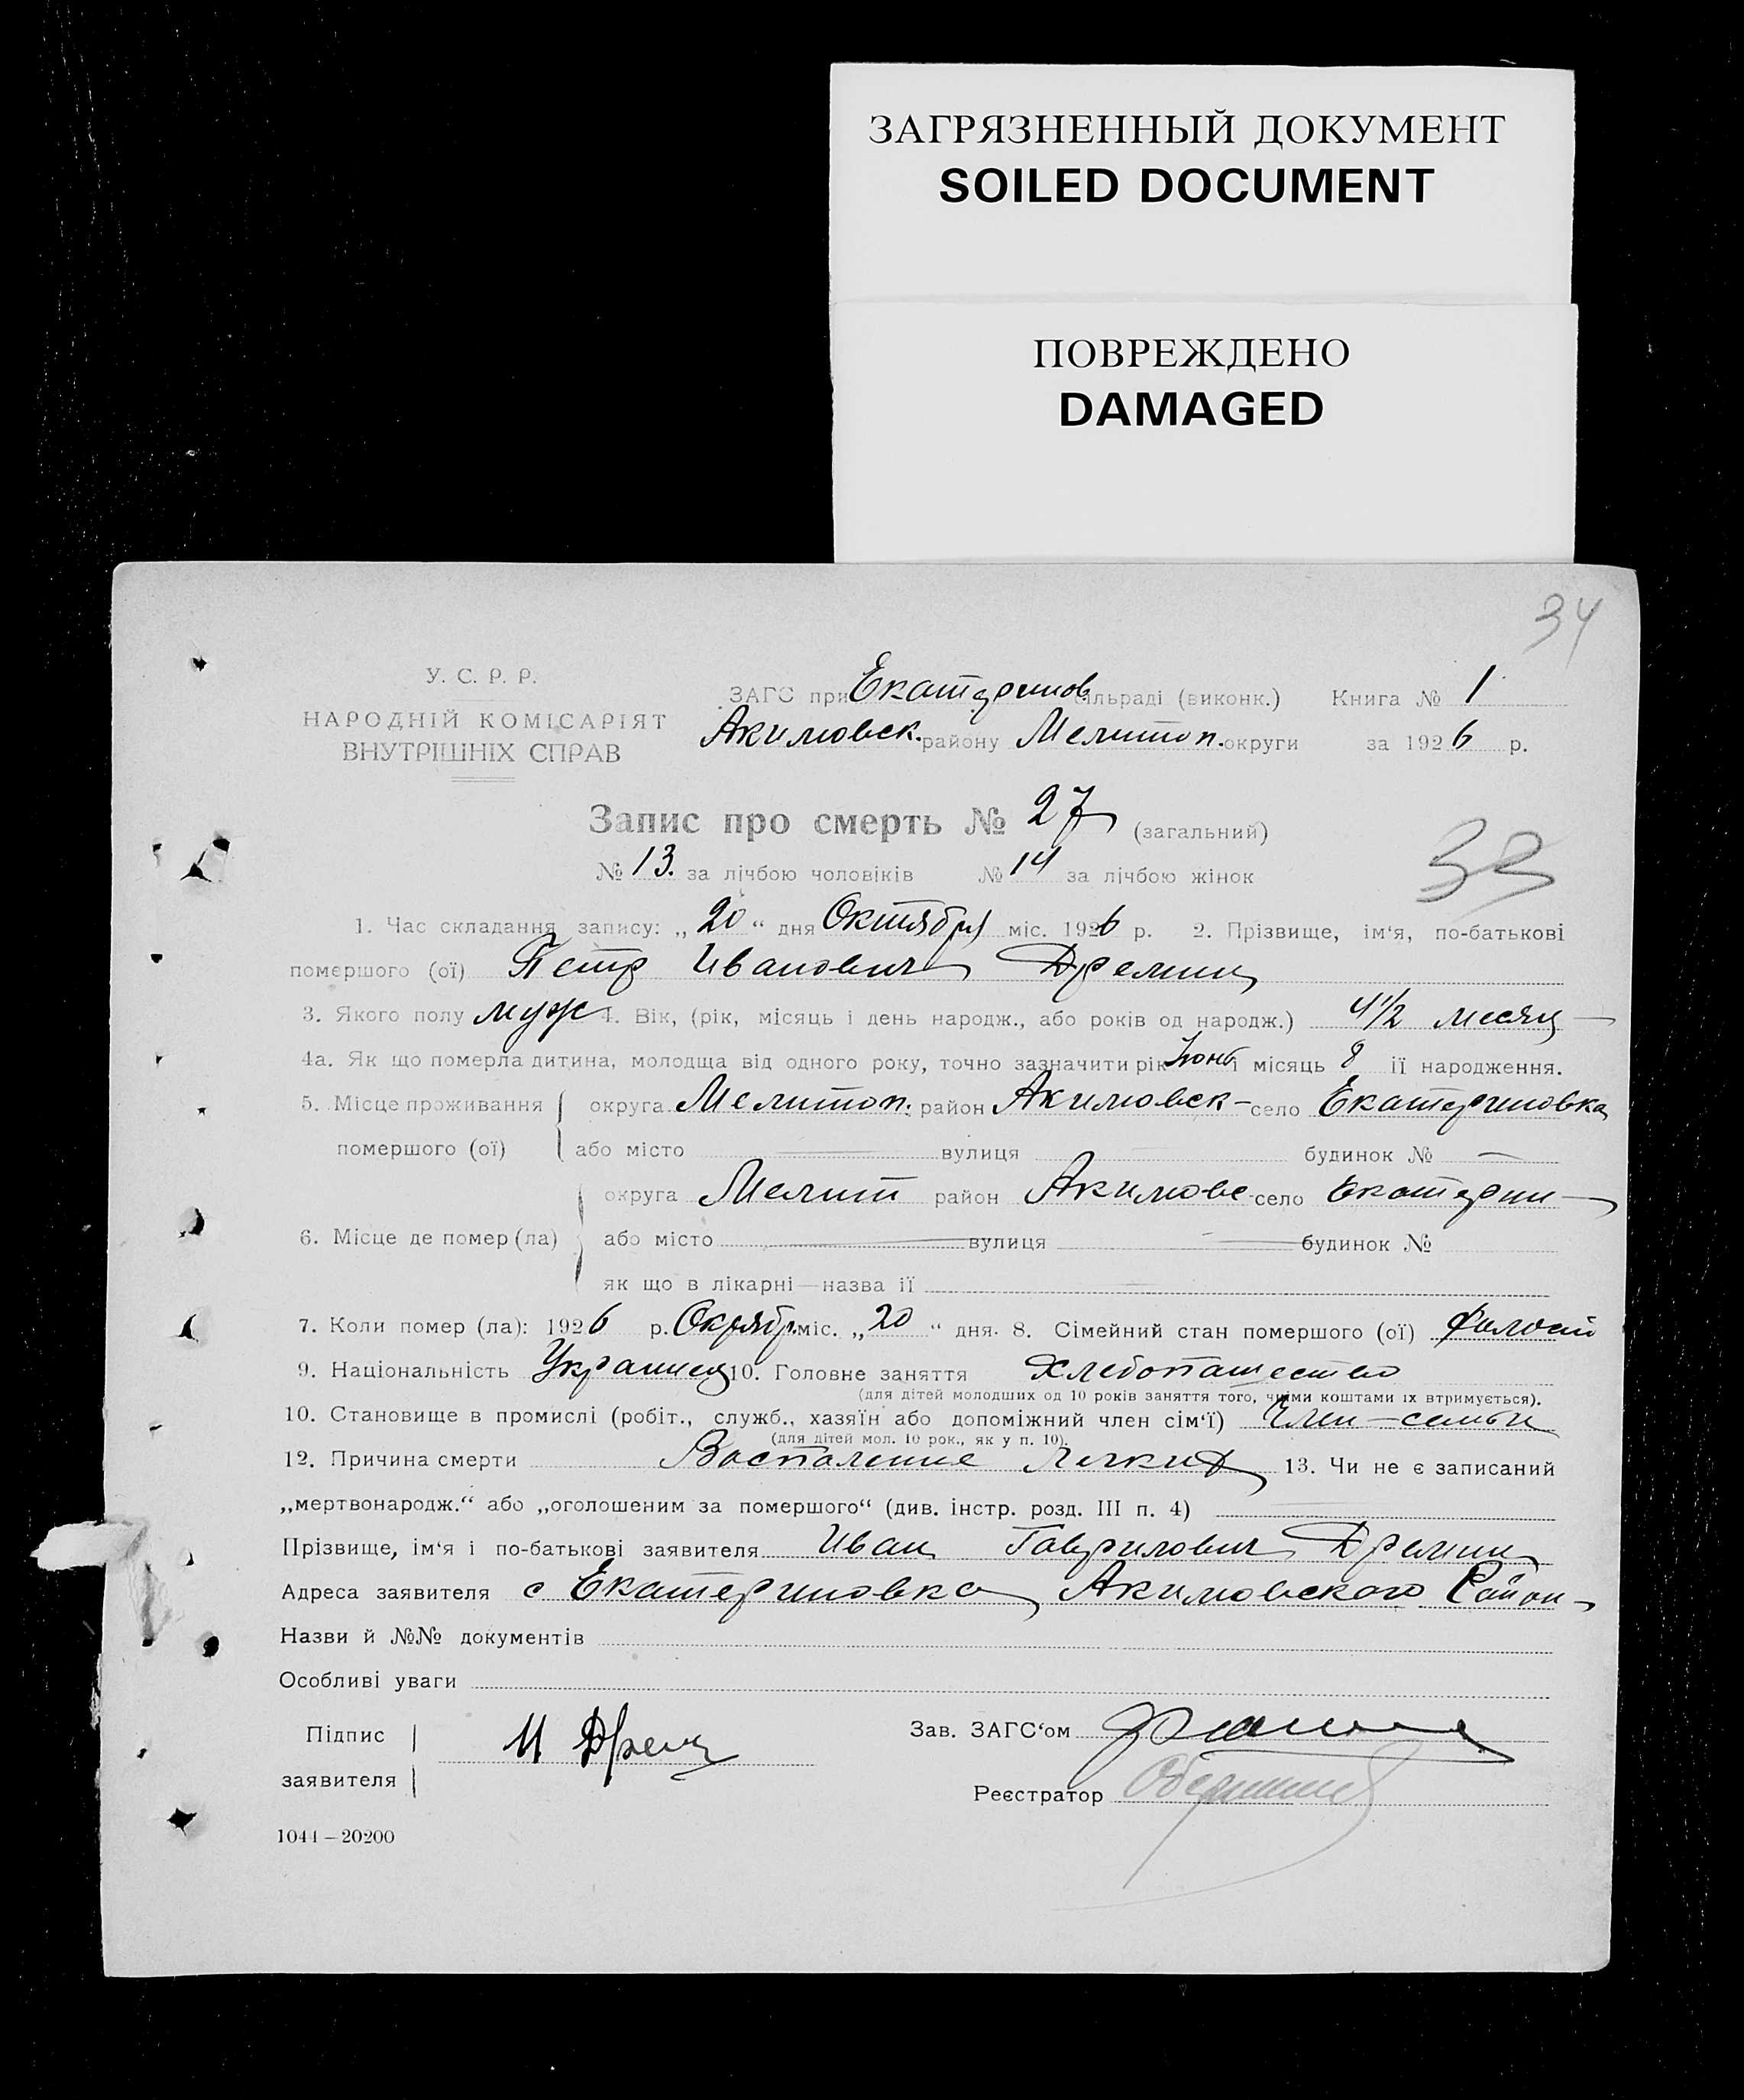 ЗАГРЯЗНЕННЫЙ ДОКУМЕНТ
SOILED DOCUMENT
ПОВРЕЖДЕНО
DAMAGED
34
У. С. Р. Р.
НАРОДНІЙ КОМІСАРІЯТ
ВНУТРІШНІХ СПРАВ
ЗАГС при Екатеринов сільраді (виконк.) Книга № 1
Акимовск. району Мелитоп. округи за 1926 р.
Запис про смерть № 27 (загальний)
33
№ 13. за лічбою чоловіків № 14 за лічбою жінок
1. Час складання запису: „20“ дня Октября міс. 1926 р. 2. Прізвище, ім‘я, по-батькові
помершого (ої) Петр Иванович Дремин
3. Якого полу муж 4. Вік, (рік, місяць і день народж., або років од народж.) 4 1/2 месяц
4а. Як що померла дитина, молодша від одного року, точно зазначити рік Июнь і місяць 8 її народження.
5. Місце проживання помершого (ої) округа Мелитоп. район Акимовск- село Екатериновка
або місто — вулиця — будинок № —
6. Місце де помер (ла) округа Мелит район Акимовс- село Екатерин
або місто — вулиця — будинок №
як що в лікарні—назва її —
7. Коли помер (ла): 1926 р. Октябр. міс. „20“ дня. 8. Сімейний стан помершого (ої) Холост
9. Національність Украинец 10. Головне заняття Хлебопашество
(для дітей молодших од 10 років заняття того, чиїми коштами їх втримується).
10. Становище в промислі (робіт., служб., хазяїн або допоміжний член сім‘ї) Член-семьи
(для дітей мол. 10 рок., як у п. 10).
12. Причина смерти Воспаление Легких 13. Чи не є записаний
„мертвонародж.“ або „оголошеним за помершого“ (див. інстр. розд. III п. 4) —
Прізвище, ім‘я і по-батькові заявителя Иван Гаврилович Дремин
Адреса заявителя с Екатериновка Акимовского Район
Назви й №№ документів
Особливі уваги
Підпис заявителя И Дрем
Зав. ЗАГС‘ом
Реєстратор
1044—20200